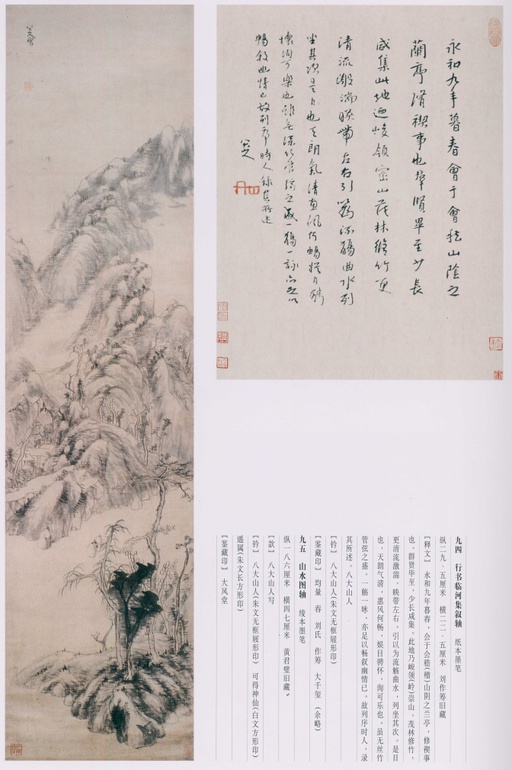 永和九年暮春會于會稽山陰之
蘭亭脩禊事也羣賢畢至少長
咸集此地迺峻領崇山茂林脩竹更
清流激湍暎帶左右引以爲流觴曲水列
坐其次是日也天朗氣清惠風何暢娛日騁
懷洵可樂也雖無絲竹管弦之盛一觴一詠亦足以
暢叙幽情已故列序時人錄其所述
八大山人
九四　行书临河集叙轴　纸本墨笔
纵二九·五厘米　横二二·五厘米　刘作筹旧藏
【释文】　永和九年暮春，会于会嵇(稽)山阴之兰亭，修禊事
也。群贤毕至，少长咸集。此地乃峻领(岭)崇山，茂林修竹，
更清流激湍，映带左右，引以为流觞曲水，列坐其次。是日
也，天朗气清，惠风何畅，娱日骋怀，洵可乐也。虽无丝竹
管弦之盛，一觞一咏，亦足以畅叙幽情已，故列序时人，录
其所述。八大山人
【钤】　八大山人(朱文无框屐形印)
【鉴藏印】　均量　吞　刘氏　作筹　大千玺　(余略)
九五　山水图轴　绫本墨笔
纵一八六厘米　横四七厘米　黄君璧旧藏
【款】　八大山人写
【钤】　八大山人(朱文无框屐形印)　可得神仙(白文方形印)
遥属(朱文长方形印)
【鉴藏印】　大风堂